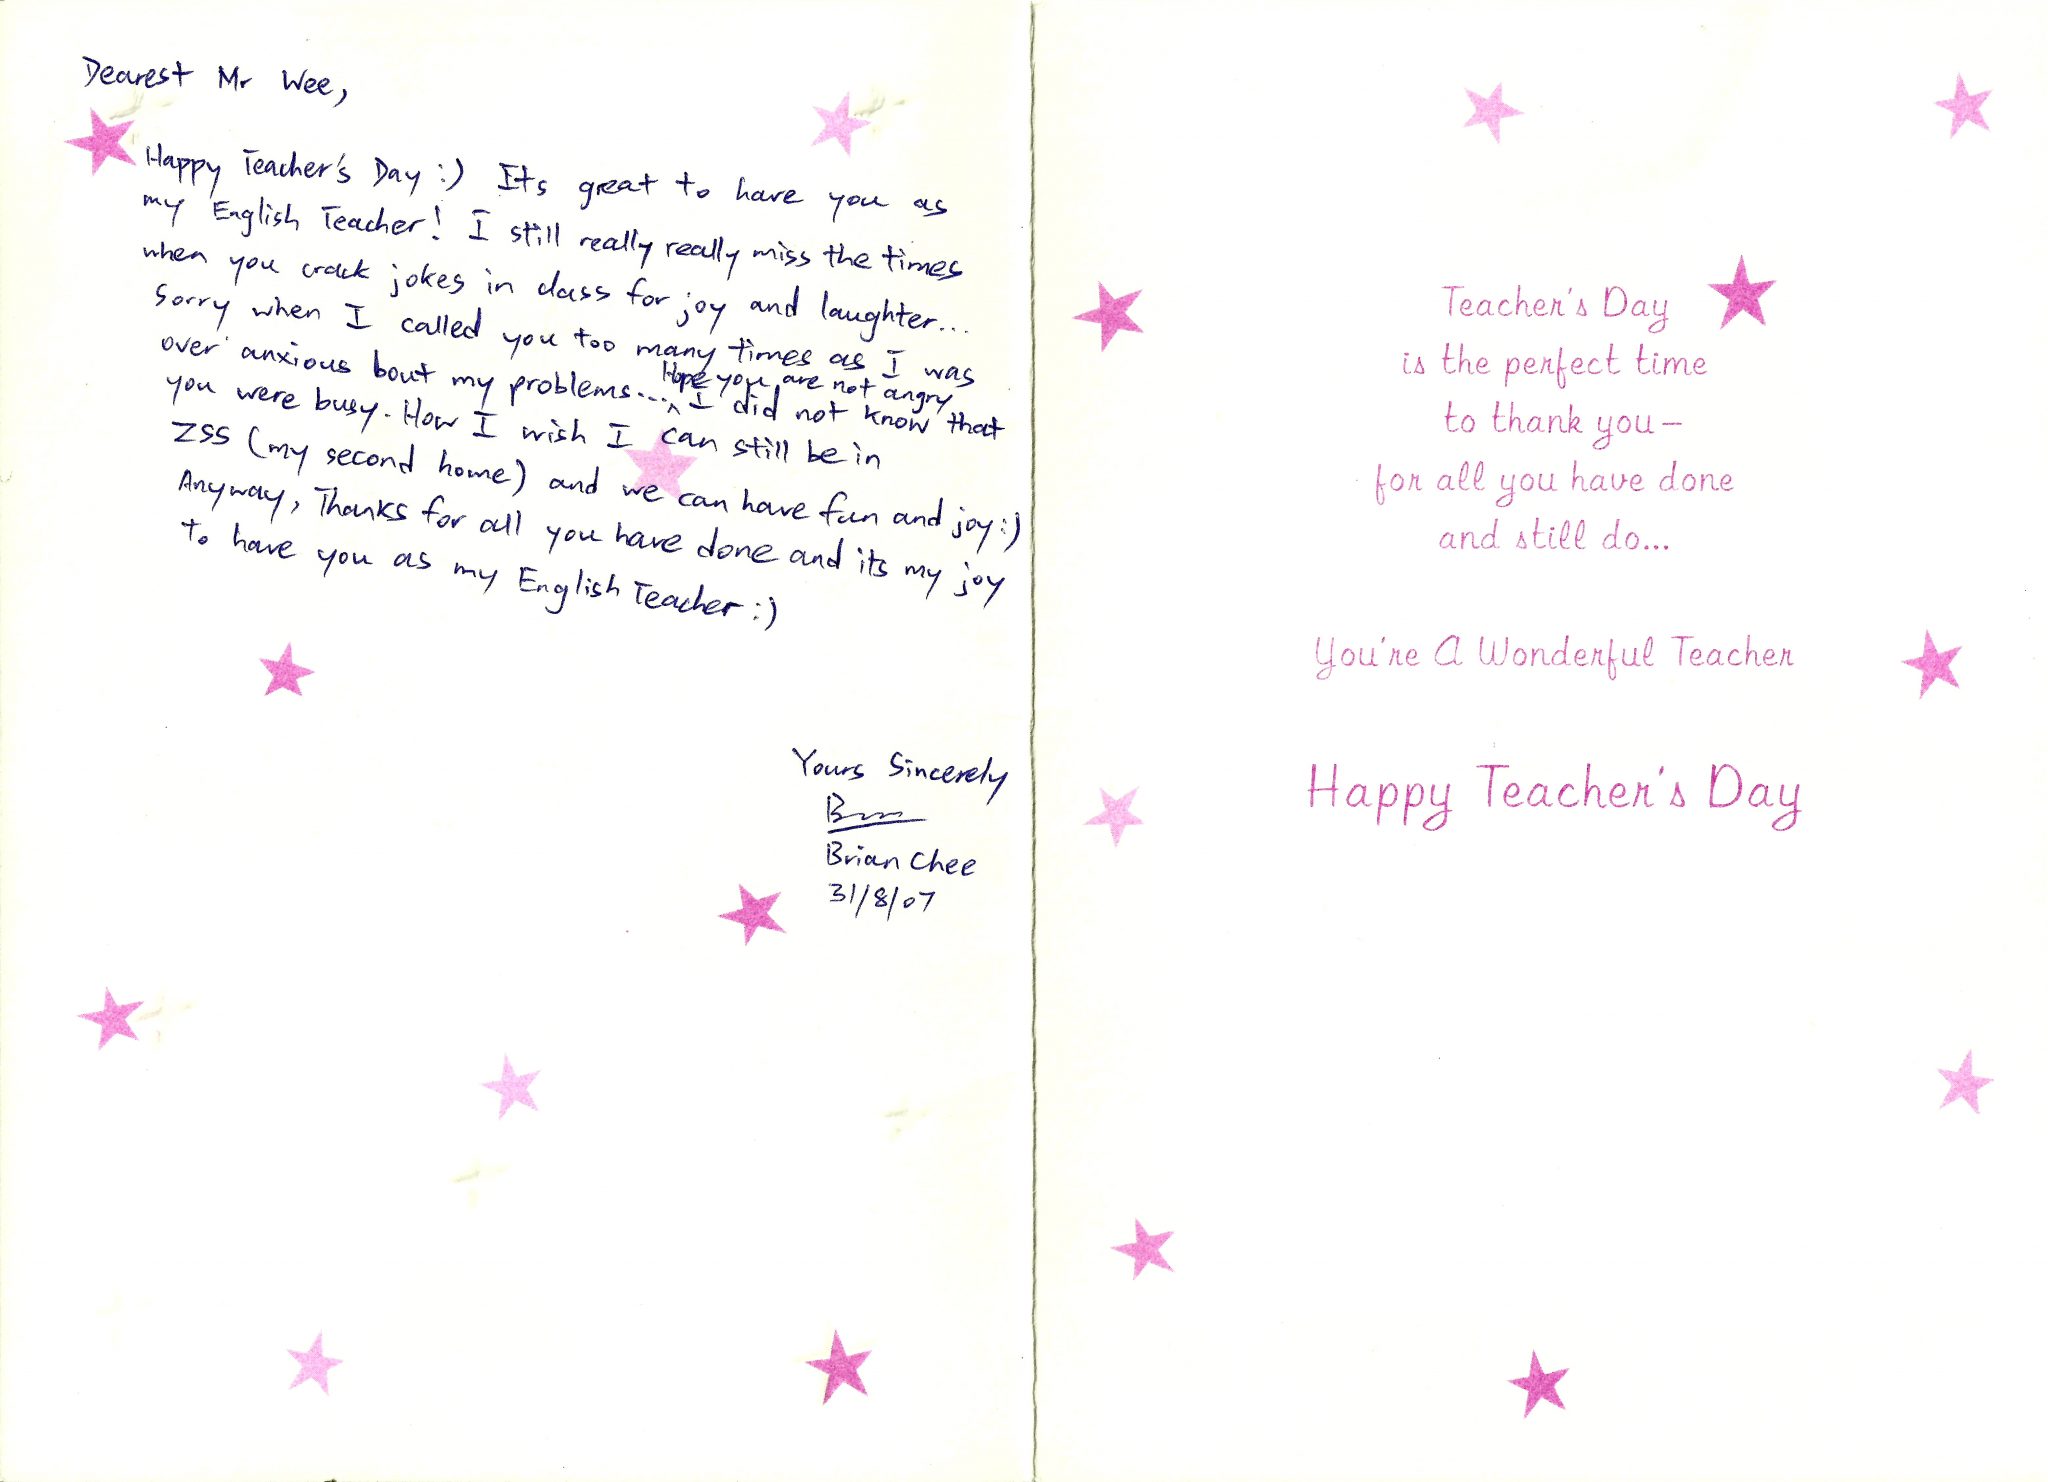 Dearest Mr Wee,
Happy Teacher's Day :) Its great to have you as
my English Teacher! I still really really miss the times
when you crack jokes in class for joy and laughter...
Sorry when I called you too many times as I was
over anxious bout my problems... Hope you are not angry
^ I did not know that
you were busy. How I wish I can still be in
ZSS (my second home) and we can have fun and joy :)
Anyway, Thanks for all you have done and its my joy
to have you as my English Teacher :)
Yours Sincerely
Brian Chee
31/8/07
Teacher's Day
is the perfect time
to thank you–
for all you have done
and still do...
You're A Wonderful Teacher
Happy Teacher's Day